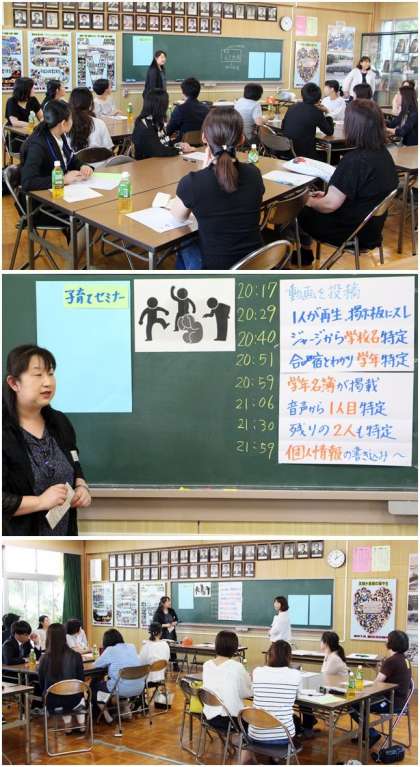 子育てセミナー
20:17 動画を投稿
20:29 1人が再生、掲示板にスレ
20:40 ジャージから学校名特定
20:51 合宿とわかり学年特定
20:59 学年名簿が掲載
21:06 音声から1人目特定
21:30 残りの2人も特定
21:59 個人情報の書き込みへ